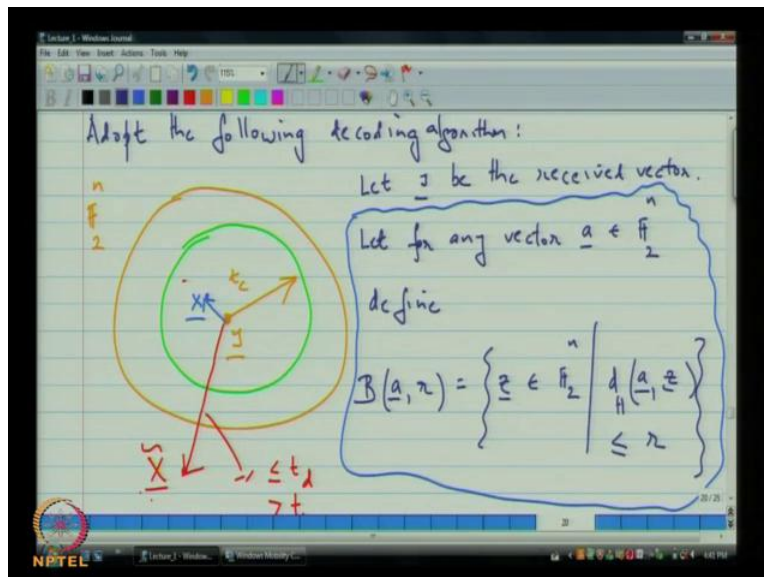 Lecture_1 - Windows Journal
File Edit View Insert Actions Tools Help
115%
B I
Adopt the following decoding algorithm:
Let y be the received vector.
n
F
2
Let for any vector a ∈ F_2^n
define
B(a, r) = { z ∈ F_2^n | d_H(a, z) ≤ r }
t_c
x
y
x̃
≤ t_d
> t
20 / 25
20
NPTEL
Lecture_1 - Window...
Windows Mobility C...
4:41 PM